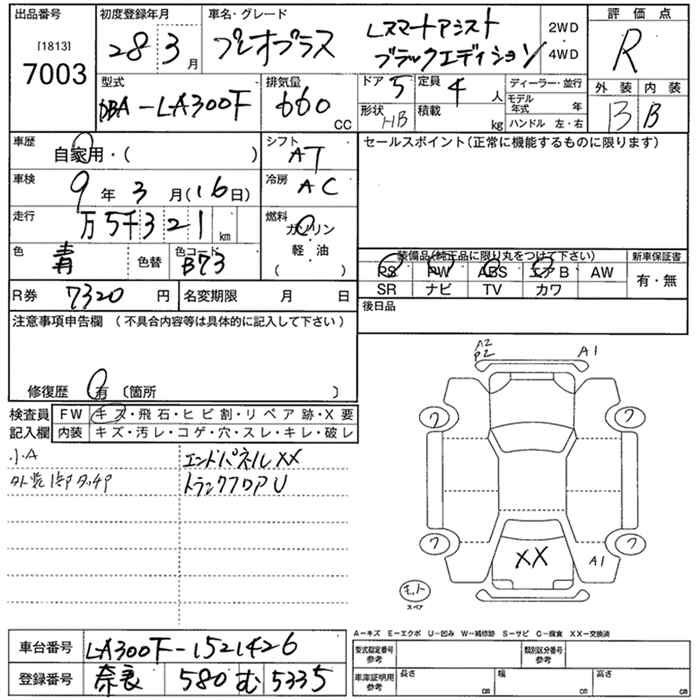 出品番号 初度登録年月 車名・グレード 評価点
[1813]
7003
28 3月 プレオプラス Lスマートアシスト 2WD
ブラックエディション 4WD
R
外装 内装
B B
型式 排気量 ドア 5 定員 4人 ディーラー・並行
DBA-LA300F 660 CC 形状 HB 積載 kg モデル年式 年
ハンドル 左・右
車歴 自家用・( )
シフト AT
セールスポイント(正常に機能するものに限ります)
車検 9年 3月(16日)
冷房 AC
走行 万5千321km
燃料 ガソリン
軽・油
( )
色 青 色替 色コード B73
装備品(純正品に限り丸をつけて下さい) 新車保証書
PS PW ABS エアB AW 有・無
SR ナビ TV カワ
R券 7320円 名変期限 月 日
後日品
注意事項申告欄 (不具合内容等は具体的に記入して下さい)
修復歴 有 〔箇所 〕
検査員 FW キズ・飛石・ヒビ割・リペア跡・X要
記入欄 内装 キズ・汚レ・コゲ・穴・スレ・キレ・破レ
小A エンドパネルXX
外装1部タッチP トランクフロアU
A2
P2
A1
7 7
7 7
XX
A1
スペア
A-キズ E-エクボ U-凹み W-補修跡 S-サビ C-腐食 XX-交換済
車台番号 LA300F-1521426
登録番号 奈良 580 む 5335
型式指定番号 参考 類別区分番号 参考
車庫証明用 参考 長さ cm 幅 cm 高さ cm